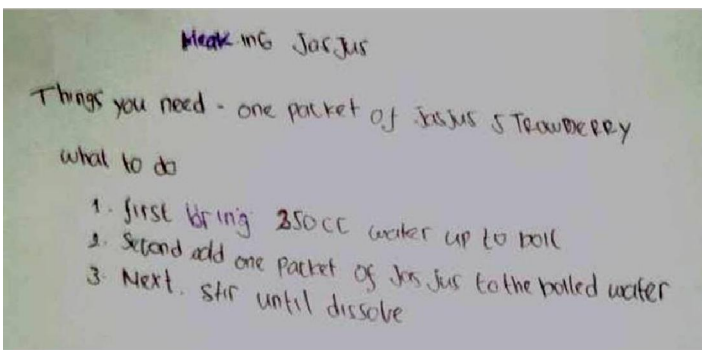 Meaking JasJus
Things you need - one packet of Jasjus sTrawBeRRy
what to do
1. first bring 250cc water up to boil
2. Second add one packet of Jas Jus to the boiled water
3. Next. stir until dissolve